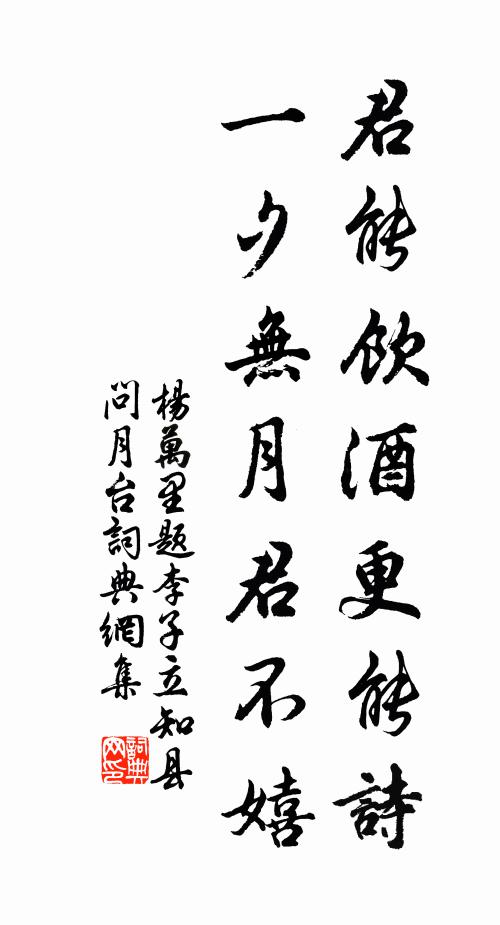 君能飲酒更能詩
一夕無月君不嬉
楊萬里題李子立知县
問月台詞典網集
詞典網印